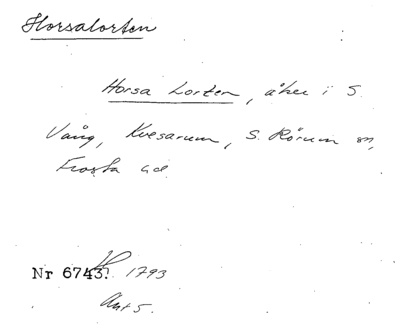 Horsalorten
Horsa Lorten, åker i S.
Vång, Kvesarum, S. Rörum sn,
Frosta hd
Nr 6743. 1793
Akt 5.